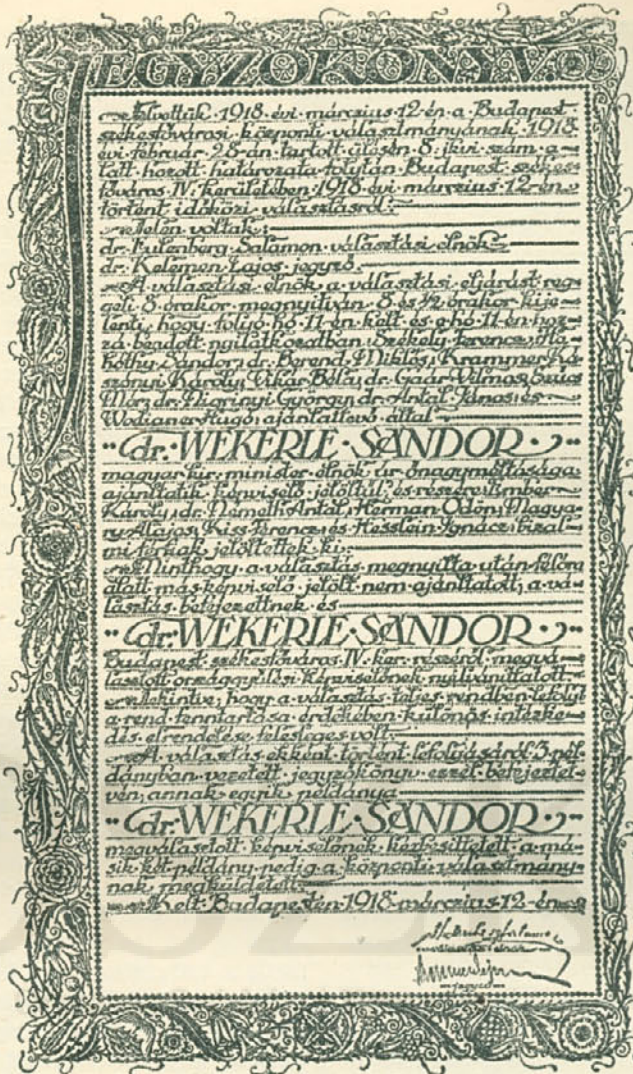 JEGYZŐKÖNYV.
Felvettük 1918 évi március 12-én a Budapest
székesfővárosi központi választmányának 1918
évi február 28-án tartott ülésén 8. jkvi szám a-
latt hozott határozata folytán Budapest székes
főváros IV. kerületében 1918 évi március 12-én
történt időközi választásról:
Jelen voltak:
dr. Eulenberg Salamon választási elnök
dr. Kelemen Lajos jegyző.
A választási elnök a választási eljárást reg-
geli 8 órakor megnyitván 8 és ½ órakor kije-
lenti, hogy folyó hó 11-én kelt és e hó 11-én hoz-
zá beadott nyilatkozatban Székely Ferencz, Ha-
Sándor, dr. Berend Miklós, Krammer
Károly, Vikár Béla, dr. Gaár Vilmos,
Mór, dr. Nigrinyi György, dr. Antal János, és
Wodianer Hugó, ajánlattevő által
dr. WEKERLE SÁNDOR
magyar kir. minister elnök úr őnagyméltósága
ajánltatik képviselő jelöltül, és részére Ember
Károly, dr. Németh Antal, Herman Ödön, Magya-
ry Alajos, Kiss Ferencz, és Hesslein Ignácz, bizal-
mi férfiak jelöltettek ki:
Minthogy a választás megnyitta után félóra
alatt más képviselő jelölt nem ajánltatott, a vá-
lasztás befejezettnek és
dr. WEKERLE SÁNDOR
Budapest székesfőváros IV. ker. részéről megvá-
lasztott országgyűlési képviselőnek nyilvánittatott.
Tekintve, hogy a választás teljes rendben lefolyt
a rend fenntartása érdekében különös intézke-
dés elrendelése felesleges volt:
A választás ekként történt lefolyásáról 3 pél-
dányban vezetett jegyzőkönyv ezzel befejeztet-
vén, annak egyik példánya
dr. WEKERLE SÁNDOR
megválasztott képviselőnek kézbesittetett a má-
sik két példány pedig a központi választmány-
nak megküldetett.
Kelt Budapesten 1918 március 12-én
jegyző